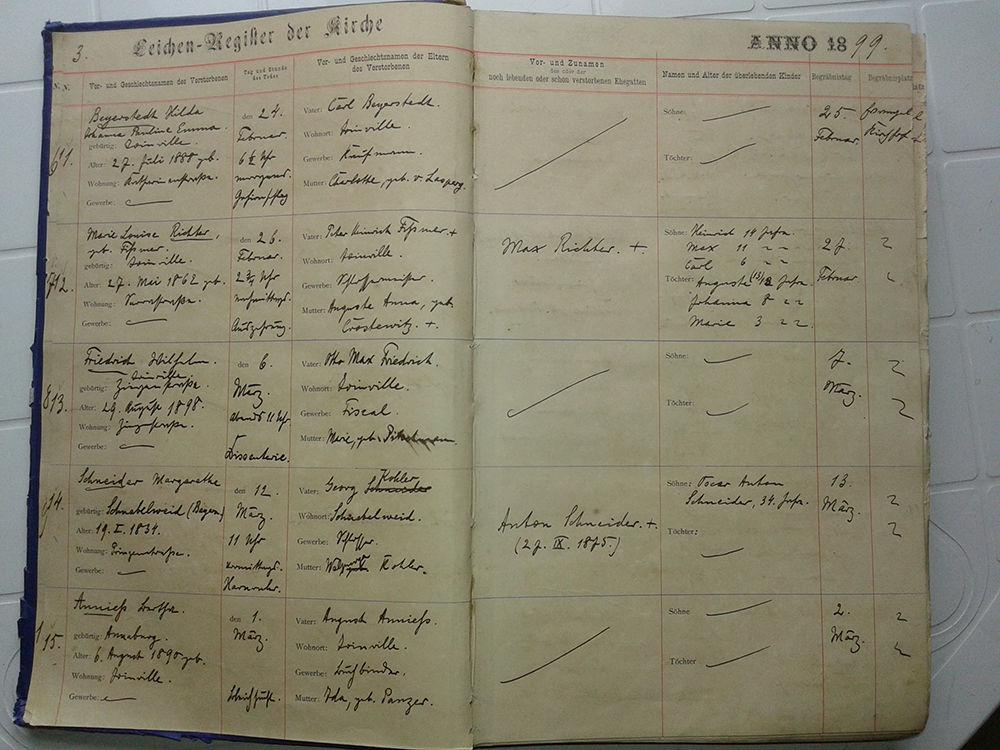 3.
Leichen-Register der Kirche
ANNO 1899.
N. N.
Vor- und Geschlechtsnamen des Verstorbenen
Tag und Stunde
des Todes
Vor- und Geschlechtsnamen der Eltern
des Verstorbenen
Vor- und Zunamen
des oder der
noch lebenden oder schon verstorbenen Ehegatten
Namen und Alter der überlebenden Kinder
Begräbnistag
Begräbnisplatz
11.
Beyerstedt Hilda
Johanna Pauline Emma.
gebürtig: Joinville.
Alter: 27. Juli 1888 geb.
Wohnung: Katharinenstraße.
Gewerbe:
den 24.
Februar.
6½ Uhr
morgens.
Vater: Carl Beyerstedt.
Wohnort: Joinville.
Gewerbe: Kaufmann.
Mutter: Charlotte, geb. v. Lasperg.
Söhne:
Töchter:
25.
Februar
12.
Marie Louise Richter,
geb. Fißmer.
gebürtig: Joinville.
Alter: 27. Mai 1862 geb.
Wohnung:
Gewerbe:
den 26.
Februar.
2¾ Uhr
nachmittags.
Auszehrung.
Vater: Peter Heinrich Fißmer. +
Wohnort: Joinville.
Gewerbe: Schlossermeister.
Mutter: Auguste Anna, geb.
Crostewitz. +.
Max Richter. +
Söhne: Heinrich 14 Jahre.
Max 11 〃 〃
Carl 6 〃 〃
Töchter: Auguste 13 Jahre.
Johanna 8 〃 〃
Marie 3 〃 〃
27.
Februar
13.
Friedrich Wilhelm.
Joinville.
gebürtig:
Alter: 29. August 1898.
Wohnung:
Gewerbe:
den 6.
März.
abends 11 Uhr
Dissenterie.
Vater: Otto Max Friedrich.
Wohnort: Joinville.
Gewerbe: Fiscal.
Mutter: Marie, geb.
Söhne:
Töchter:
7.
März.
14.
Schneider Margarethe
gebürtig: Schnabelweid (Bayern)
Alter: 19. I. 1834.
Wohnung: Prinzenstraße.
Gewerbe:
den 12.
März.
11 Uhr
vormittags.
Vater: Georg Schneider Kohler
Wohnort: Schnabelweid.
Gewerbe: Schlosser.
Mutter: Kohler.
Anton Schneider. +.
(27. IX. 1875.)
Söhne: Oscar Anton
Schneider, 34. Jahre.
Töchter:
13.
März.
15.
Annieß Bertha.
gebürtig: Annaburg.
Alter: 6. August 1890 geb.
Wohnung: Joinville.
Gewerbe:
den 1.
März.
Vater: August Annieß.
Wohnort: Joinville.
Gewerbe: Buchbinder.
Mutter: Ida, geb. Panzer.
Söhne
Töchter
2.
März.